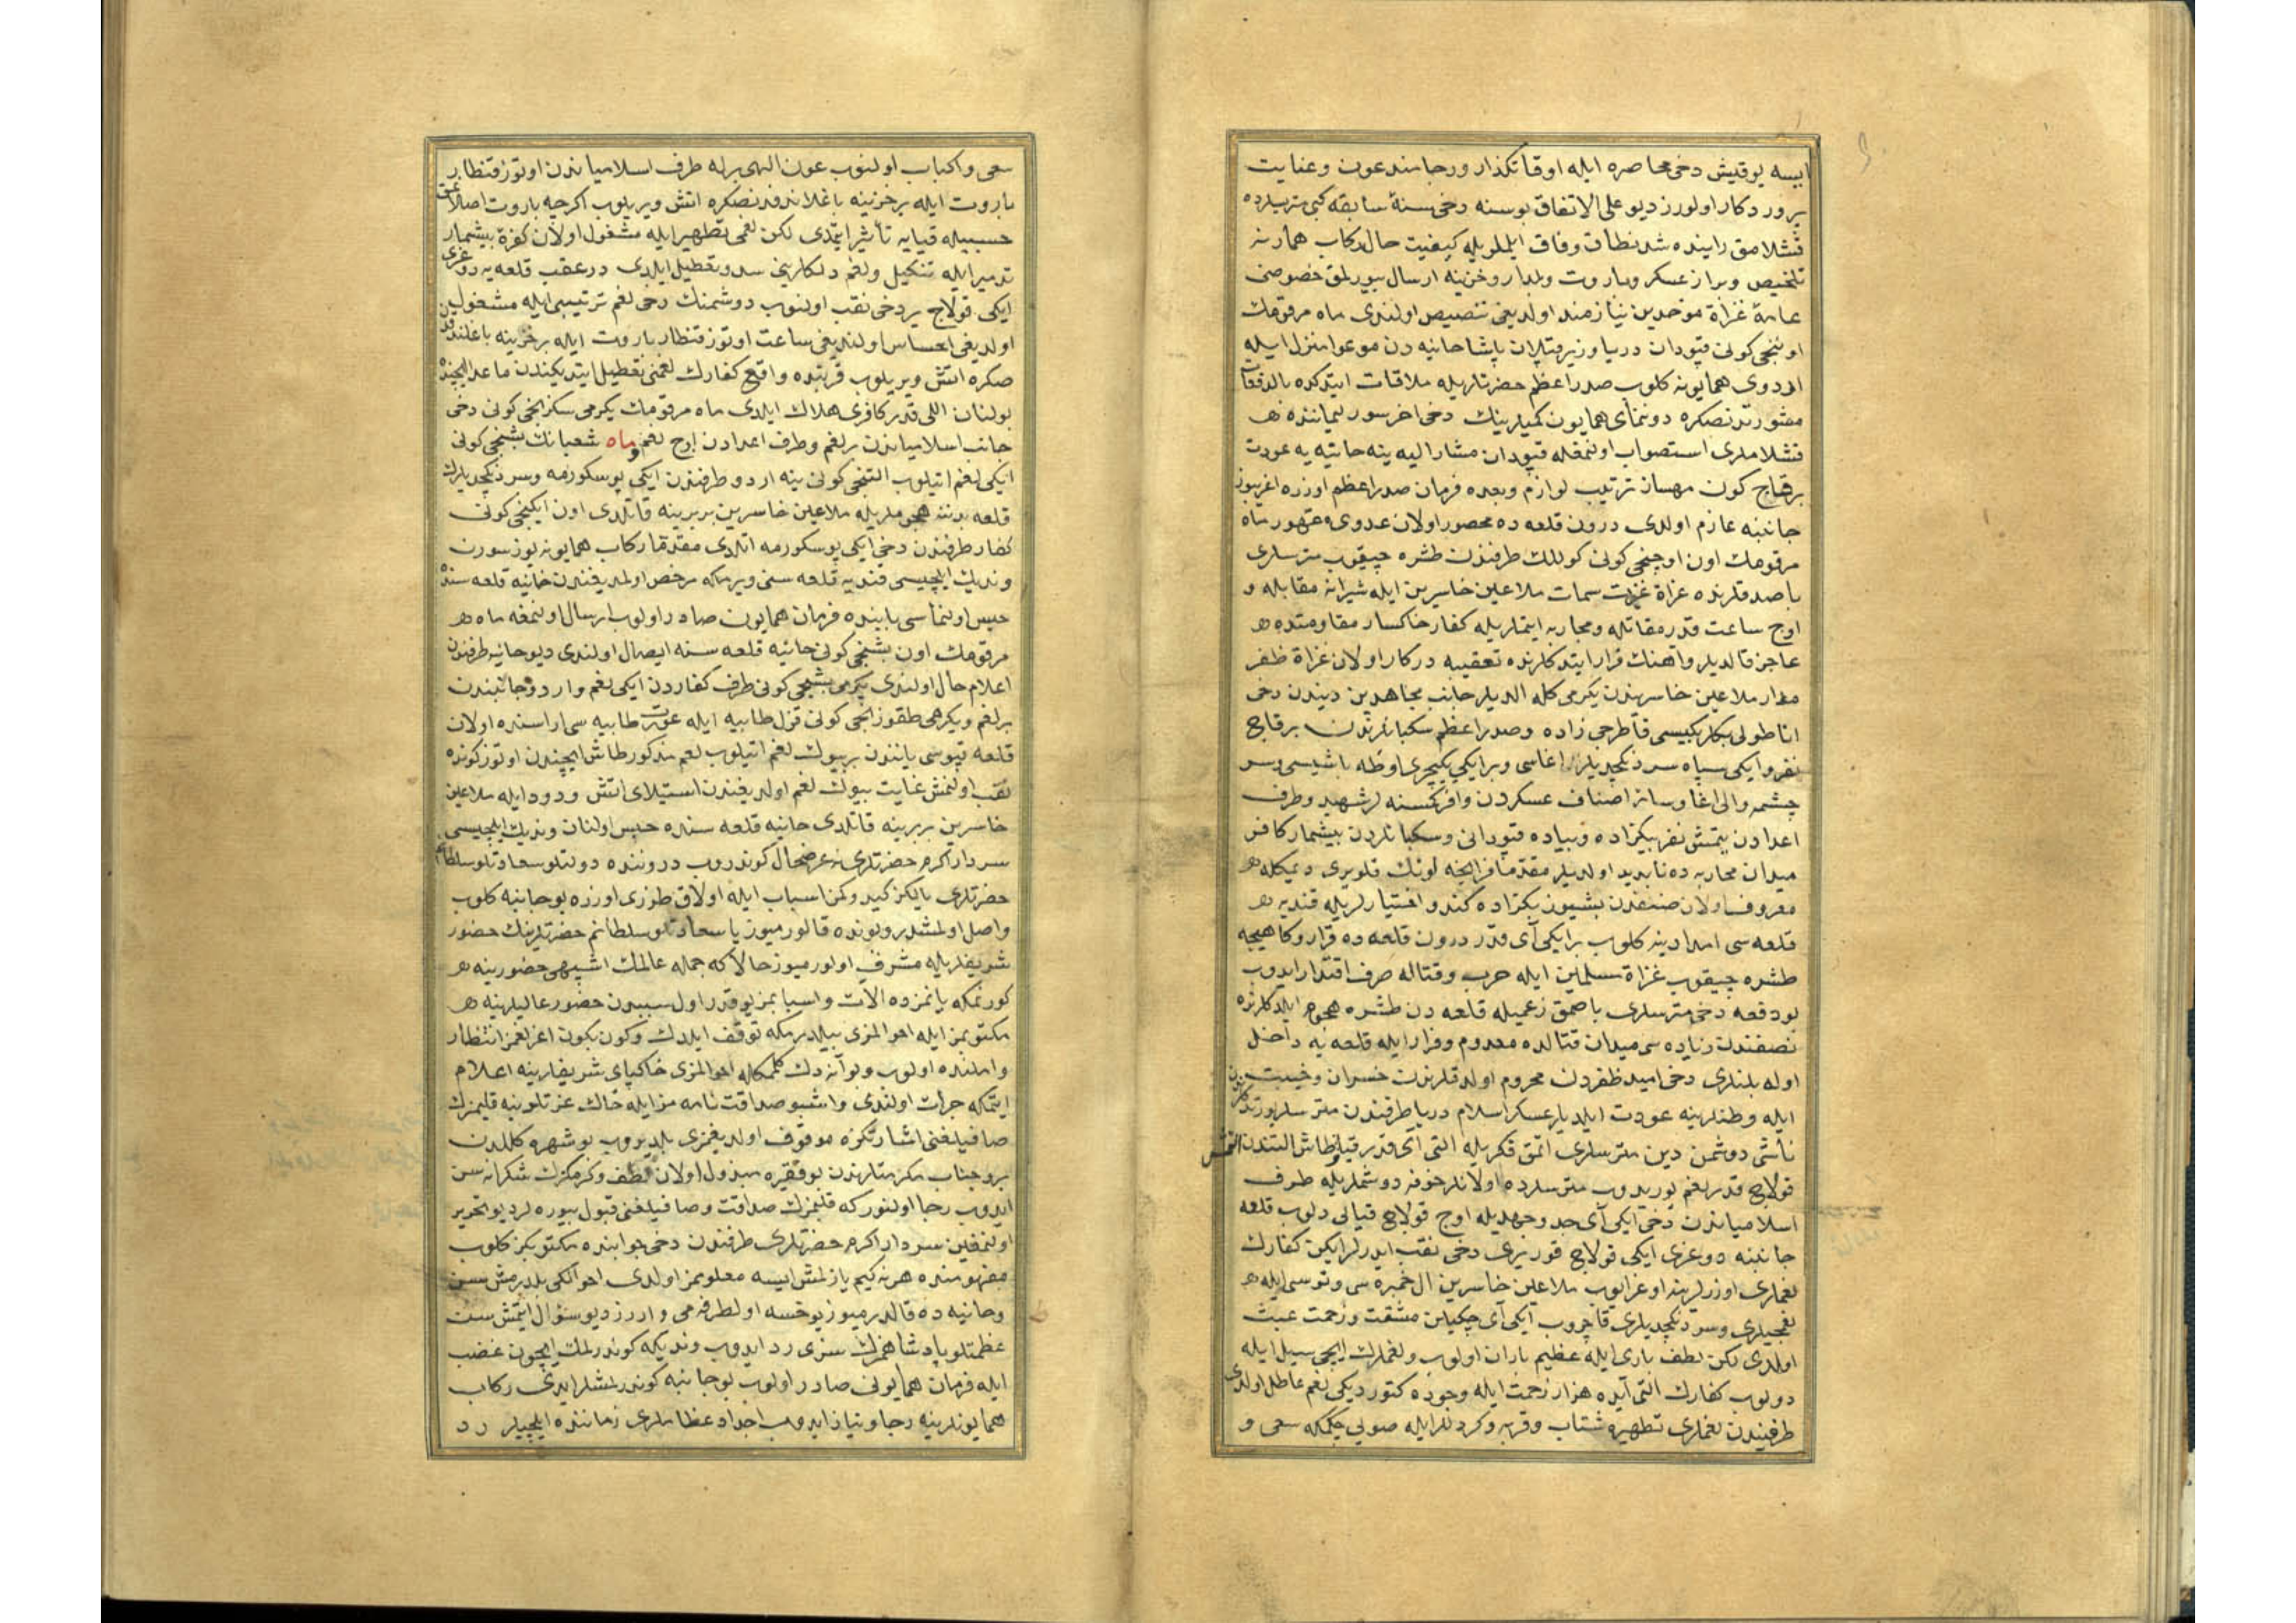 ايسه يوقيش دخى محاصره ايله اوقاتكذار ورجامند عون وعنايت
پروردكار اولورز ديو على الاتفاق بوسنه دخى سنهٔ سابقه كبى مترسلرده
قشلامق راينده شد نطاق وفاق ايلملريله كيفيت حال ركاب همايونه
تلخيص وبراز عسكر وباروت وخزينه ارسال بيورلمق خصوصى
عامهٔ غزاة موحدين نيازمند اولديغى تنصيص اولندى ماه مرقومك
اوننجى كونى قپودان دريا وزير قپلان پاشا حانيه دن ايله
اردوى همايونه كلوب صدراعظم حضرتلريله ملاقات ايتدكده بالدفعات
مشورتدنصكره دونماى همايون كميلرينك دخى اخر سور ليماننده
قشلاملرى استصواب اولنمغله قپودان مشار اليه ينه حانيه يه عودت
برقاچ كون ترتيب لوازم وبعده فرمان صدراعظم اوزره
جانبنه عازم اولدى درون قلعه ده محصور اولان عدوى مقهور ماه
مرقومك اون اوچنجى كونى كوللك طرفندن طشره چيقوب مترسلرى
باصدقلرنده غزاة غيرت سمات ملاعين خاسرين ايله شيرانه مقابله و
اوچ ساعت قدر مقاتله ومحاربه ايتملريله كفار خاكسار مقاومتده
عاجز قالديلر واهنك فرار ايتدكلرنده تعقيبه دركار اولان غزاة ظفر
مدار ملاعين خاسريندن يكرمى كله الديلر جانب مجاهدين ديندن دخى
اناطولى بكلربكيسى قاطرجى زاده وصدراعظم سكبانلرندن برقاچ
نفر وايكى سپاه سردنكچديلر اغاسى وبر ايكى يكيچرى اوطه باشيسى وسر
چشمه والى اغا وسائر اصناف عسكردن وافر كسنه لر شهيد وطرف
اعدادن يتمش نفر بكزاده وپياده قپودانى وسكبانلردن بيشمار كافر
ميدان محاربه ده نابديد اولديلر مقدما فرانچه لونك قلويرى ديمكله
معروف اولان صنفندن بشيوز بكزاده كندو اختيارلريله قنديه
قلعه سى امدادينه كلوب بر ايكى آى قدر درون قلعه ده قرار وكاهيجه
طشره چيقوب غزاة مسلمين ايله حرب وقتاله صرف اقتدار ايدوب
بودفعه دخى مترسلرى باصمق زعميله قلعه دن طشره هجوم ايلدكلرنده
نصفندن زياده سى ميدان قتالده معدوم وفرار ايله قلعه يه داخل
اوله بلنلرى دخى اميد ظفردن محروم اولدقلرندن خسران وخيبت
ايله وطنلرينه عودت ايلديلر عسكر اسلام دريا طرفندن
ناشى دوشمن دين مترسلرى اتمق فكريله التى آى قدر قپلو طاش التندن التمش
قولاچ قدر لغم يوريدوب مترسلرده اولانلر خوفه دوشملريله طرف
اسلامياندن دخى ايكى آى جد وجهديله اوچ قولاچ قيالى دلوب قلعه
جانبنه دوغرى ايكى قولاچ قورى يرى دخى نقب ايدرلر ايكن كفارك
لغملرى اوزرلرينه اوغرايوب ملاعين خاسرين ال خمبره سى وتوتسى ايله
لغمجيلرى وسردنكچديلرى قاچروب ايكى آى چكيلن مشقت وزحمت عبث
اولدى لكن لطف بارى ايله عظيم باران اولوب ولغملرك ايچى سيل ايله
دولوب كفارك التى آيده هزار زحمت ايله وجوده كتورديكى لغم عاطل اولدى
طرفيندن لغملرى تطهيره شتاب وقربه وكردللر ايله صويى چكمكه سعى و
سعى واكباب اولنوب عون الهى برله طرف اسلامياندن اوتوز قنطار
باروت ايله بر خزينه باغلاندقدنصكره اتش ويريلوب اكرچه باروت اصلاعتق
حسبيله قيايه تأثير ايتمدى لكن لغمى تطهير ايله مشغول اولان كفرهٔ بيشمار
تدمير ايله تنكيل ولغم دلكلرينى سد وتعطيل ايلدى درعقب قلعه يه دوغرى
ايكى قولاچ ير دخى نقب اولنوب دوشمنك دخى لغم ترتيبى ايله مشغولين
اولديغى احساس اولنديغى ساعت اوتوز قنطار باروت ايله بر خزينه باغلندقدن
صكره اتش ويريلوب قربنده واقع كفارك لغمنى تعطيل ايتديكندن ماعدا ايچنده
بولنان اللى قدر كافرى هلاك ايلدى ماه مرقومك يكرمى سكزنجى كونى دخى
جانب اسلامياندن بر لغم وطرف اعدادن اوچ لغم وماه شعبانك بشنجى كونى
ايكى لغم اتيلوب التنجى كونى ينه اردو طرفندن ايكى پوسكورمه وسردنكچديلرك
قلعه بدننه هجوملريله ملاعين خاسرين بربرينه قاتلدى اون ايكنجى كونى
كفار طرفندن دخى ايكى پوسكورمه اتلدى مقدما ركاب همايونه يوز سورن
ونديك ايلچيسى قنديه قلعه سنى ويرمكه مرخص اولمديغندن حانيه قلعه سنده
حبس اولنماسى بابنده فرمان همايون صادر اولوب ارسال اولنمغه ماه
مرقومك اون بشنجى كونى حانيه قلعه سنه ايصال اولندى ديو حانيه طرفندن
اعلام حال اولندى يكرمى بشنجى كونى طرف كفاردن ايكى لغم واردو جانبندن
بر لغم ويكرمى طقوزنجى كونى قزل طابيه ايله عورت طابيه سى اراسنده اولان
قلعه قپوسى ياننده بر بيوك لغم اتيلوب لغم مذكور طاش ايچندن اوتوز كونده
نقب اولنمش غايت بيوك لغم اولديغندن استيلاى اتش ودود ايله ملاعين
خاسرين بربرينه قاتلدى حانيه قلعه سنده حبس اولنان ونديك ايلچيسى
سردار اكرم حضرتلرينه عرضحال كوندروب دروننده دولتلو سعادتلو سلطانم
حضرتلرى يالكز كيدوكمز اسباب ايله اولاق طرزى اوزره بو جانبه كلوب
واصل اولمشدر وبونده قالورميوز يا سعادتلو سلطانم حضرتلرينك حضور
شريفلريله مشرف اولورميوز حالا كه جمله عالمك اشبهى حضورينه
كورنمكه يانمزده الات واسبابمز يوقدر اول سببدن حضور عاليلرينه
مكتوبمز ايله احوالمزى بيلدرمكه توقف ايلدك وكون بكون اعزلغمز انتظار
وامانده اولوب وبوآنه دك كلمكله احوالمزى خاكپاى شريفلرينه اعلام
ايتمكه جرأت اولندى واشبو صداقتنامه مز ايله خاك عزتلرينه قلبمزك
صافيلغنى اشارتكزه موقوف اولديغمزى بلديروب بو شهره كلدن
برو جناب مكرمتلرندن بو فقيره مبذول اولان لطف وكرمكزك شكرانه سن
ايدوب رجا اولنور كه قلبمزك صداقت وصافيلغنى قبول بيوره لر ديو تحرير
اولنمغين سردار اكرم حضرتلرى طرفندن دخى جوابنده مكتوبكز كلوب
مفهومنده هر نه كيم يازلمش ايسه معلوممز اولدى احوالكى بلدرمش سن
وحانيه ده قالورميوز يوخسه اولطرفه مى واررز ديو سؤال ايتمش سن
عظمتلو پادشاهمزك سزى رد ايدوب ونديكه كوندرلمك ايچون غضب
ايله فرمان همايونى صادر اولوب بو جانبه كوندرلمشلر ايدى ركاب
همايونلرينه رجا ونياز ايدوب اجداد عظاملرى زماننده ايلچيلر رد